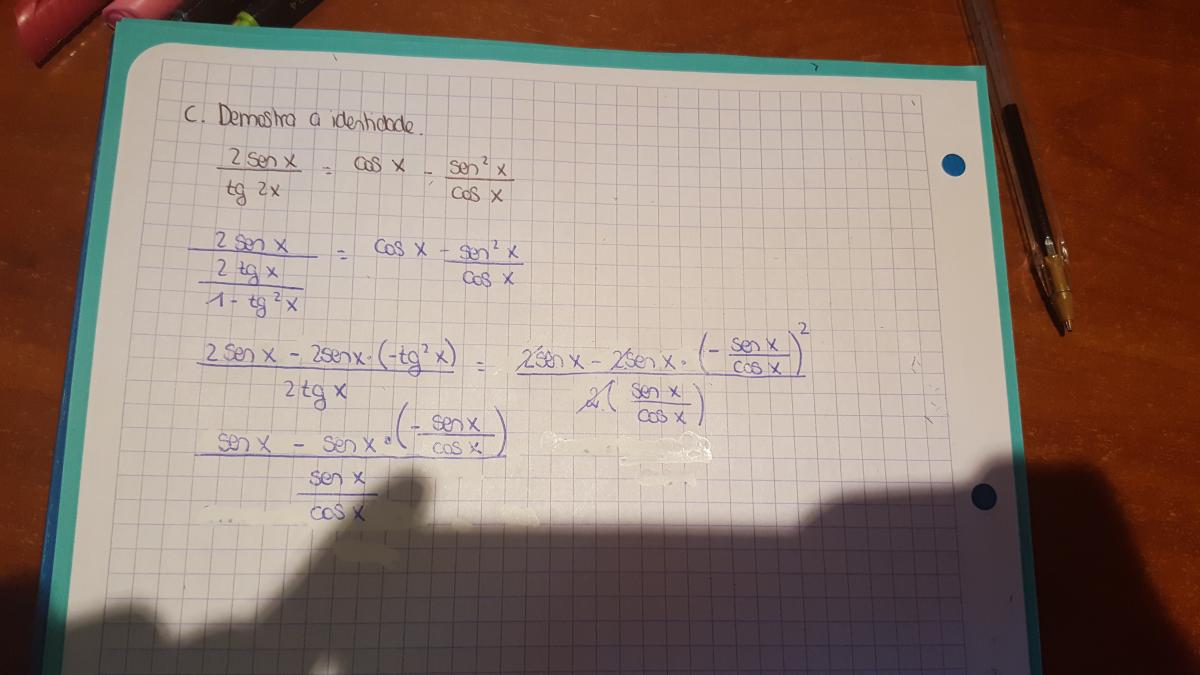 C. Demostra a identidade.
2 sen x / tg 2x = cos x - sen² x / cos x
2 sen x / (2 tg x / 1 - tg² x) = cos x - sen² x / cos x
2 sen x - 2 sen x · (-tg² x) / 2 tg x = 2 sen x - 2 sen x · (- sen x / cos x)² / 2 · (sen x / cos x)
sen x - sen x · (- sen x / cos x) / (sen x / cos x)